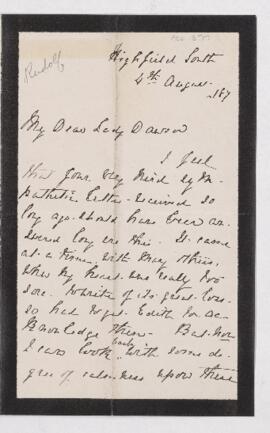 Rudolf
Highfield South
4th August
187
My Dear Lady Dawson
I feel
that your very kind sym-
pathetic letter - received so
long ago should have been an-
swered long ere this. It came
at a time, with many others,
when my heart was really too
sore to write of its great loss
so had to get Edith to ac-
knowledge them - But now
I can look back with some de-
gree of calmness upon these